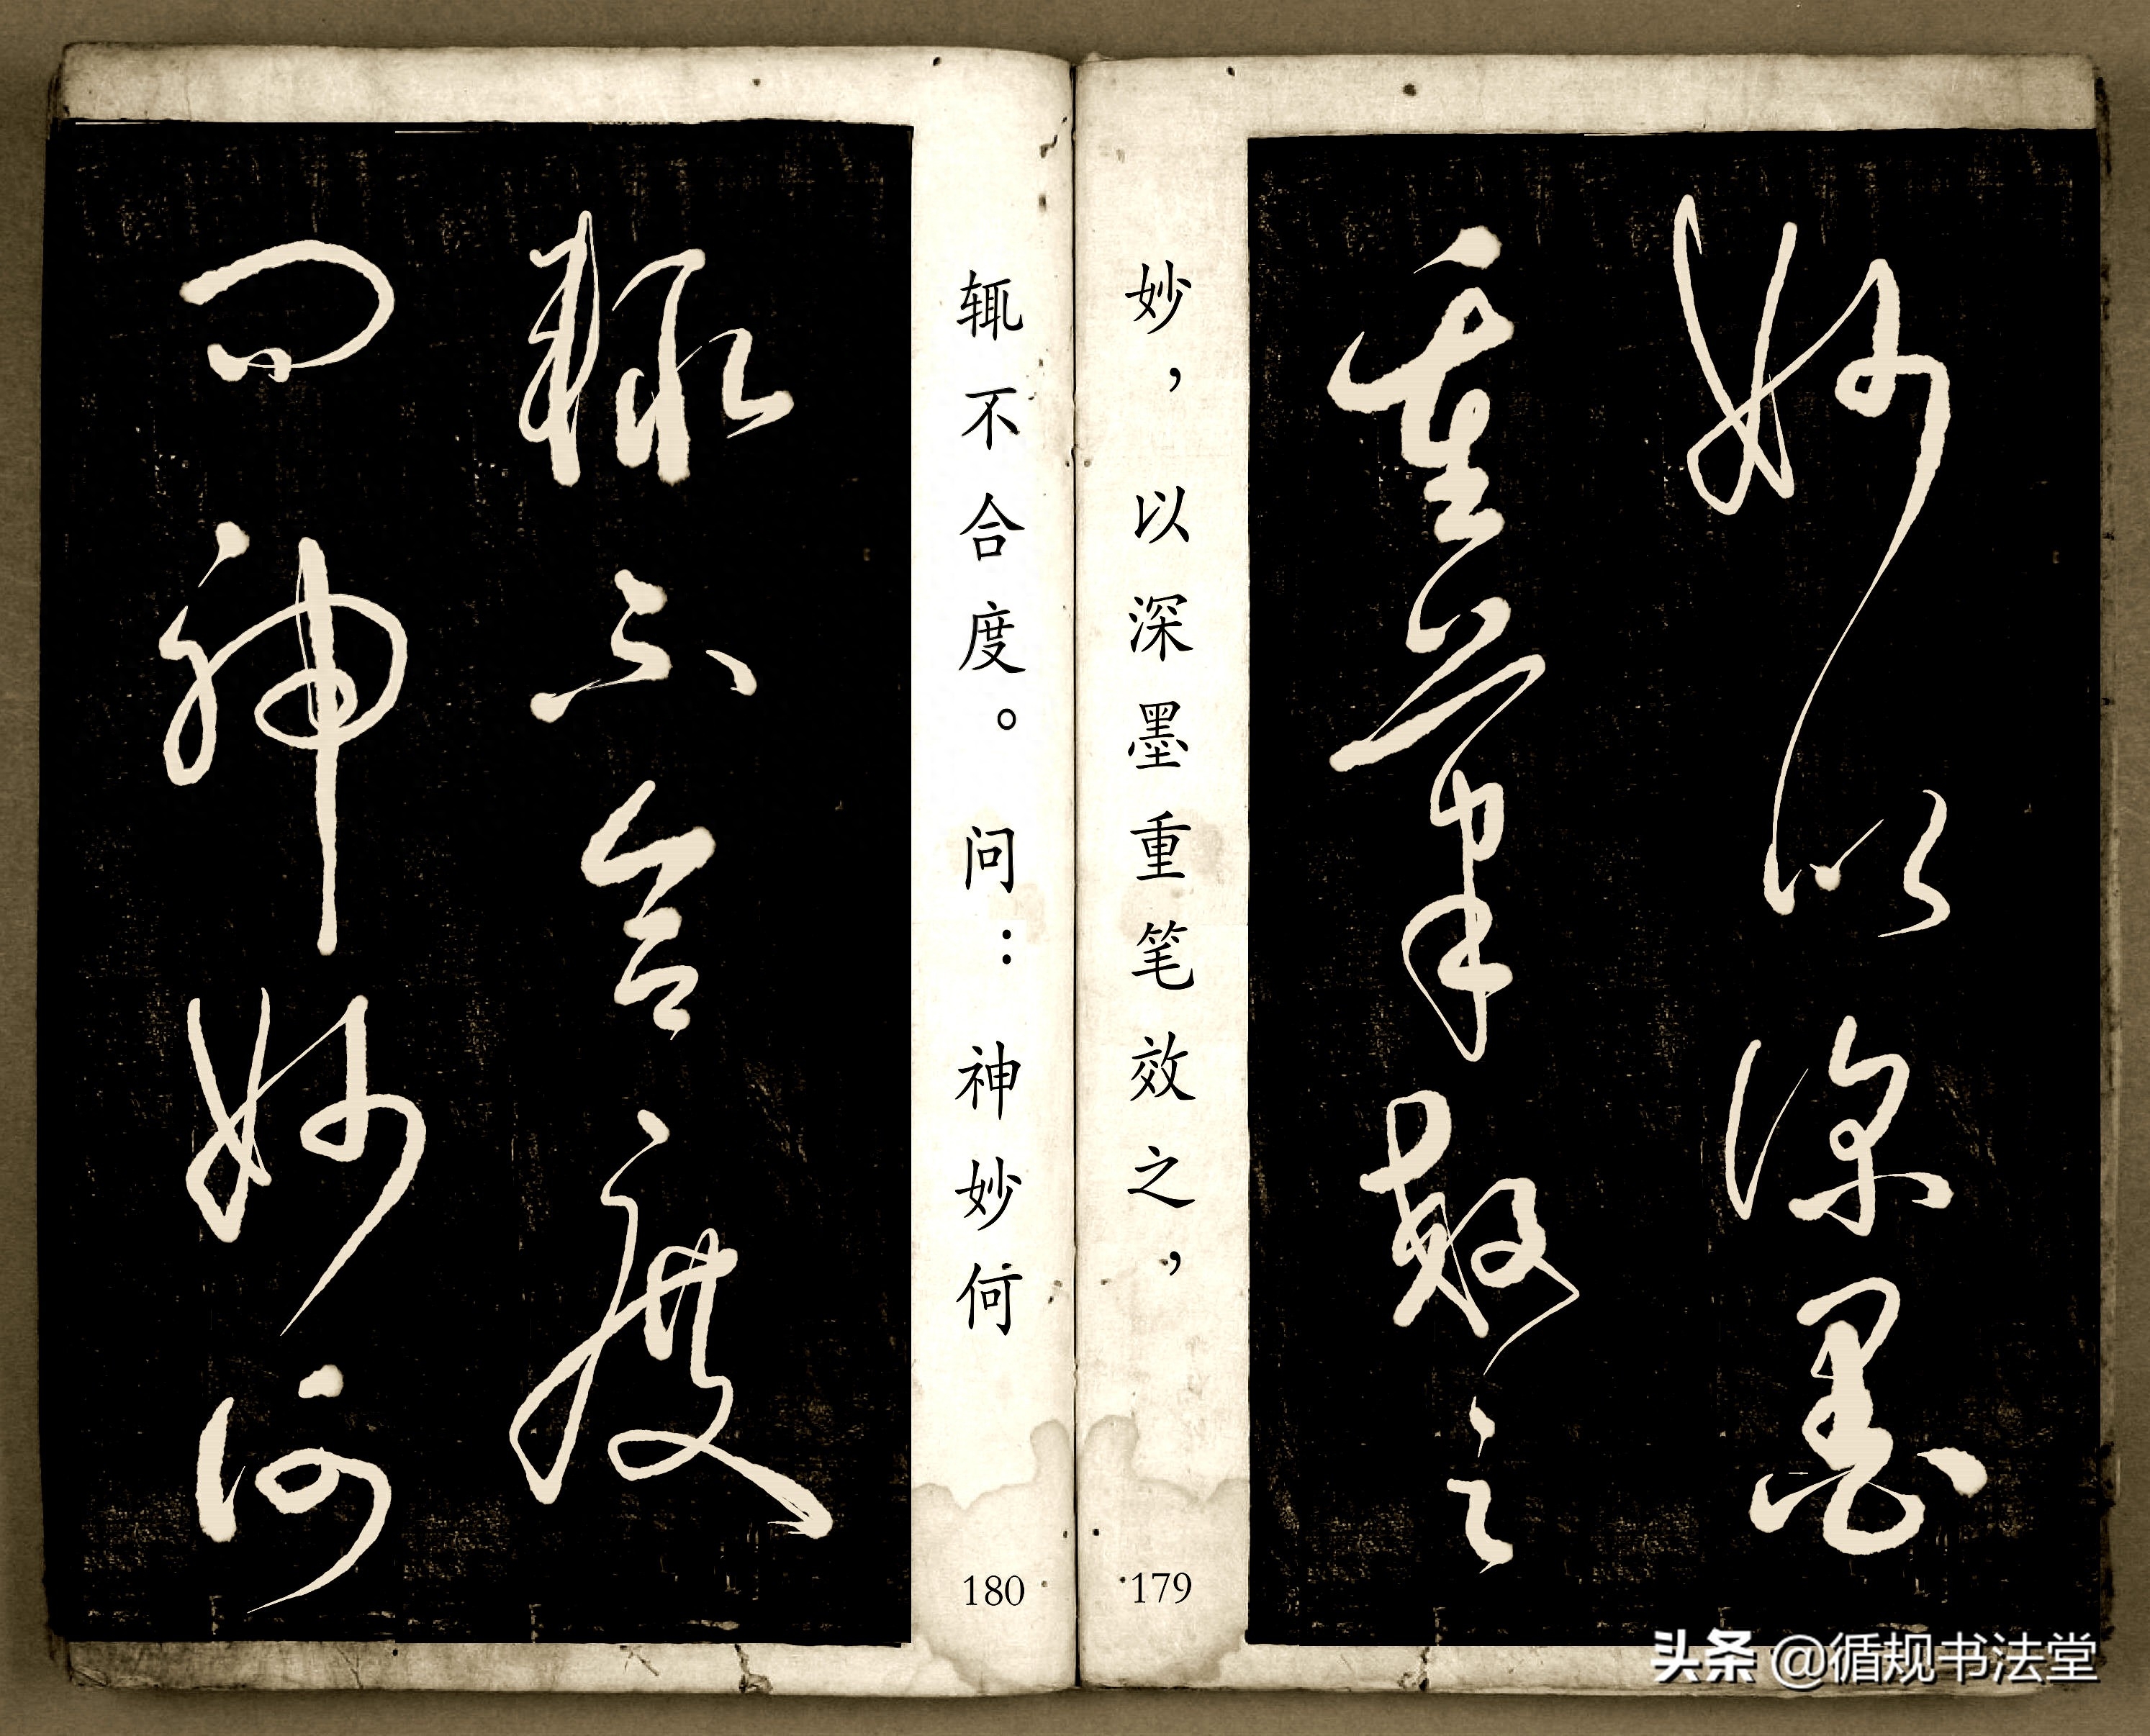 妙以深墨
重笔效之
妙，以深墨重笔效之，
179
辄不合度。问：神妙何
180
辄不合度
问神妙何
头条 @循规书法堂